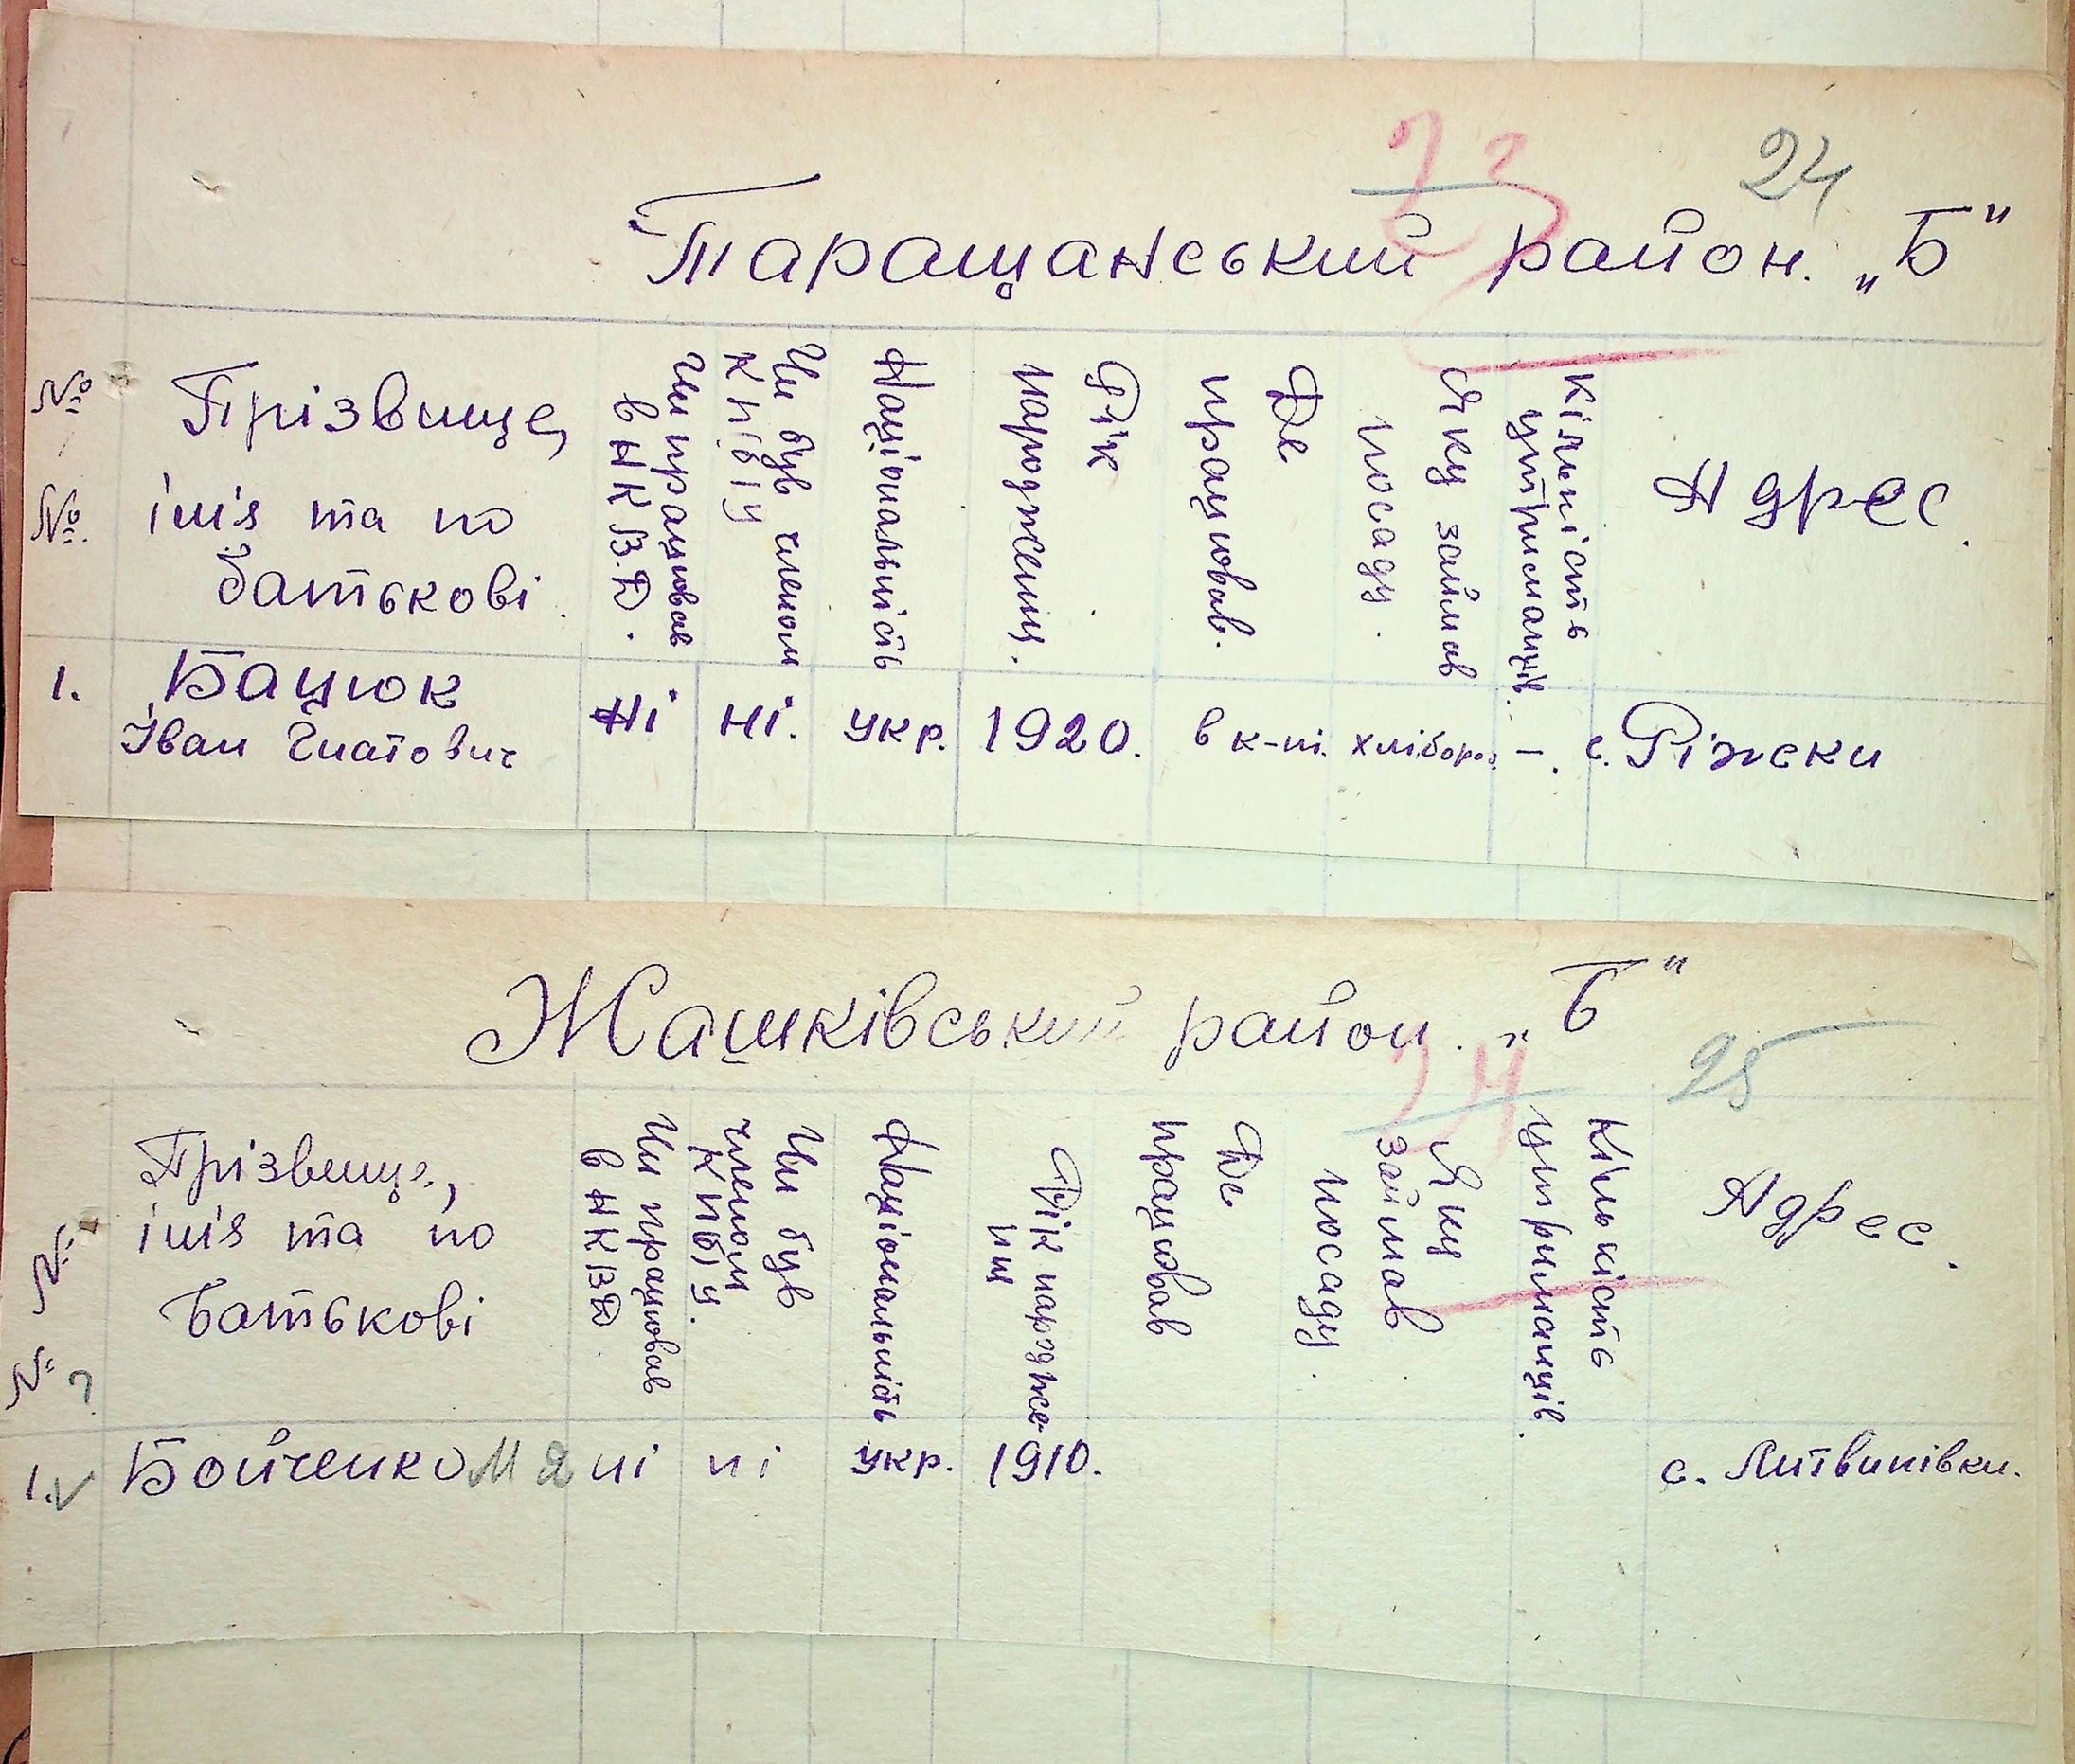 23 24
Таращанський район. „Б"
№
№.
Прізвище,
імія та по
батькові.
Чи працював
в НКВ.Д.
Чи був членом
КП(б)У
Національність
Рік
народження.
Де
працював.
Яку займав
посаду.
Кількість
утриманців.
Адрес.
1. Бацюк
Іван Гнатович
Ні ні. укр. 1920. в к-пі. хлібороб. –. с. Ріжски
Жашківський район. „Б"
24 25
№
№
Прізвище,
імія та по
батькові
Чи працював
в НКВД.
Чи був
членом
КП(б)У.
Національність
Рік народже-
ня
Де
працював
Яку
займав
посаду.
Кількість
утриманців.
Адрес.
1. Бойченко М Д ні ні укр. 1910. с. Литвинівки.